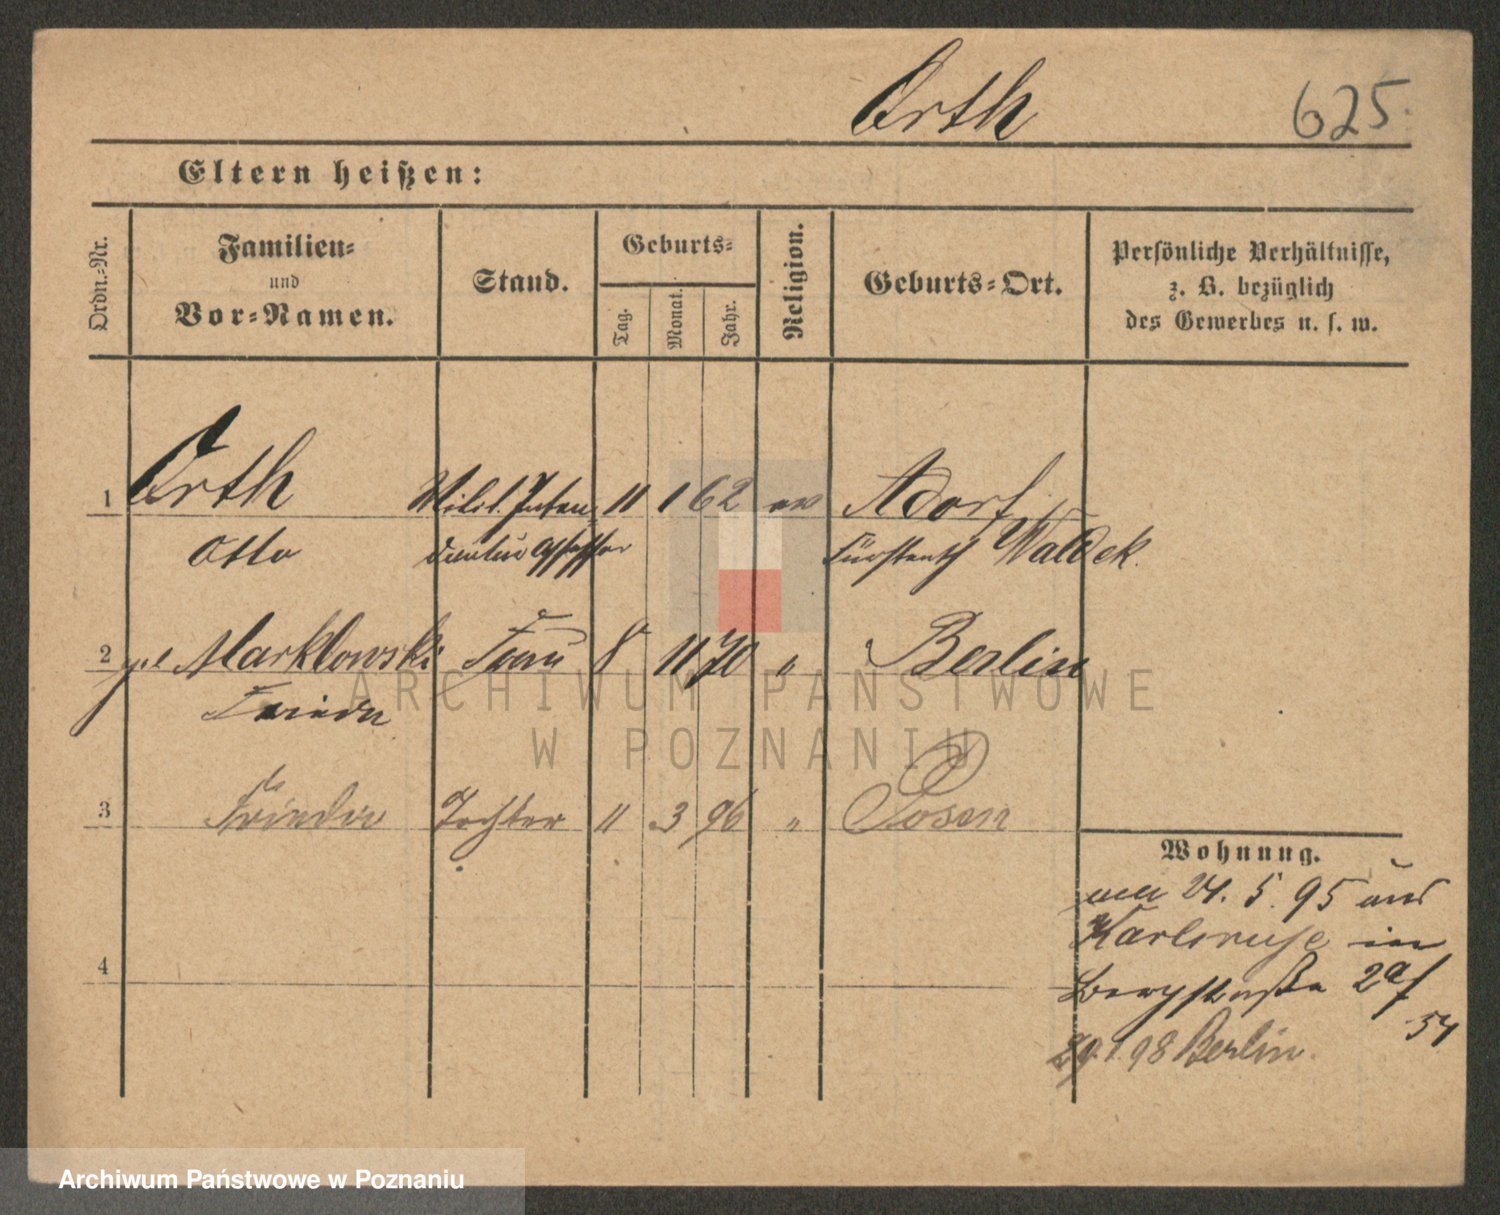 Orth
625.
Eltern heißen:
Ordn.-Nr.
Familien-
und
Vor-Namen.
Stand.
Geburts-
Tag.
Monat.
Jahr.
Religion.
Geburts-Ort.
Persönliche Verhältnisse,
z. B. bezüglich
des Gewerbes u. s. w.
1 Orth Milit. Inten- 11 1 62 ev Adorf
Otto dantur Assessor Fürstenth Waldek.
2 geb Marklowski Frau 8 11 70 " Berlin
Frieda
3 Tochter 11 3 96 " Posen
Wohnung.
24. 5. 95 aus
Karlsruhe in
Bergstraße 2a
4
98 Berlin.
ARCHIWUM PAŃSTWOWE
W POZNANIU
Archiwum Państwowe w Poznaniu